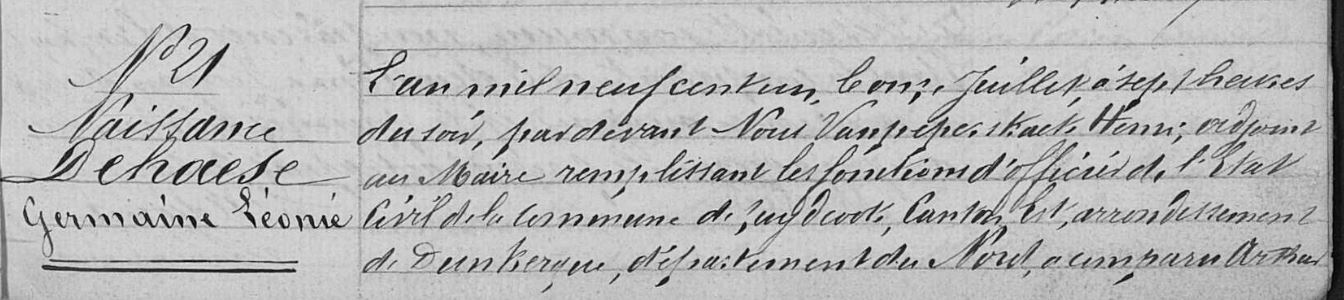 N° 21
Naissance
Dehaese
Germaine Léonie
L'an mil neuf cent un, le onze Juillet, à sept heures
du soir, pardevant Nous Henri, adjoint
au Maire remplissant les fonctions d'officier de l'Etat
Civil de la commune de Zuydcoote, Canton Est, arrondissement
de Dunkerque, département du Nord, a comparu Arthur